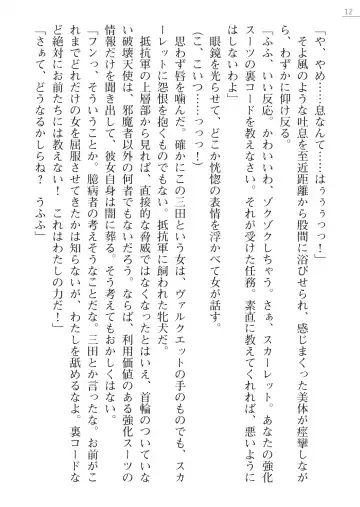 12
「や、やめ……息なんて……はぅぅぅつっ！」
そよ風のような吐息を至近距離から股間に浴びせられ、感じまくった美体が痙攣しなが
ら、わずかに仰け反る。
「ふふ、いい反応。かわいいわ、ゾクゾクしちゃう。さぁ、スカーレット。あなたの強化
スーツの裏コードを教えなさい。それが受けた任務。素直に教えてくれれば、悪いように
はしないわよ」
眼鏡を光らせて、どこか恍惚の表情を浮かべて女が話す。
(こ、こいつ……っっっ！)
思わず唇を噛んだ。確かにこの三田という女は、ヴァルクエットの手のものでも、スカ
ーレットに怨恨を抱くものでもない。抵抗軍に飼われた牝犬だ。
抵抗軍の上層部から見れば、直接的な脅威ではなくなったとはいえ、首輪のついていな
い破壊天使は、邪魔者以外の何者でもないだろう。ならば、利用価値のある強化スーツの
情報だけを聞き出して、彼女自身は闇に葬る。そう考えてもおかしくはない。
「フンっ、そういうことか。臆病者の考えそうなことだな。三田とか言ったな。お前がこ
れまでどれだけの女を屈服させてきたかは知らないが、わたしを舐めるなよ。裏コードな
ど絶対にお前たちには教えない！　これはわたしの力だ！」
「さぁて、どうなるかしらね？　うふふ」